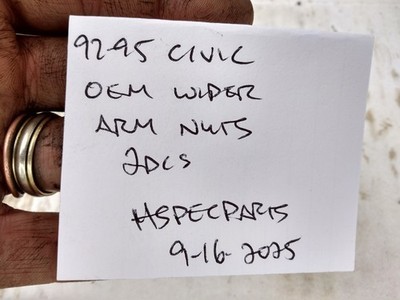 92-95 CIVIC
OEM WIPER
ARM NUTS
2DCS
HSPECPARTS
9-16-2025